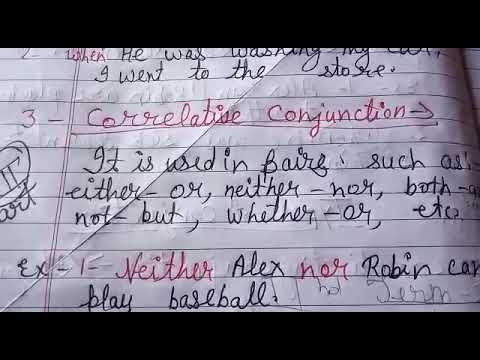 2- when He was washing my car,
I went to the store.
3- Correlative Conjunction→
It is used in Pairs. such as:
either-or, neither-nor, both-a
not-but, whether-or, etc.
II
art
Ex-1- Neither Alex nor Robin can
play baseball.
Term-